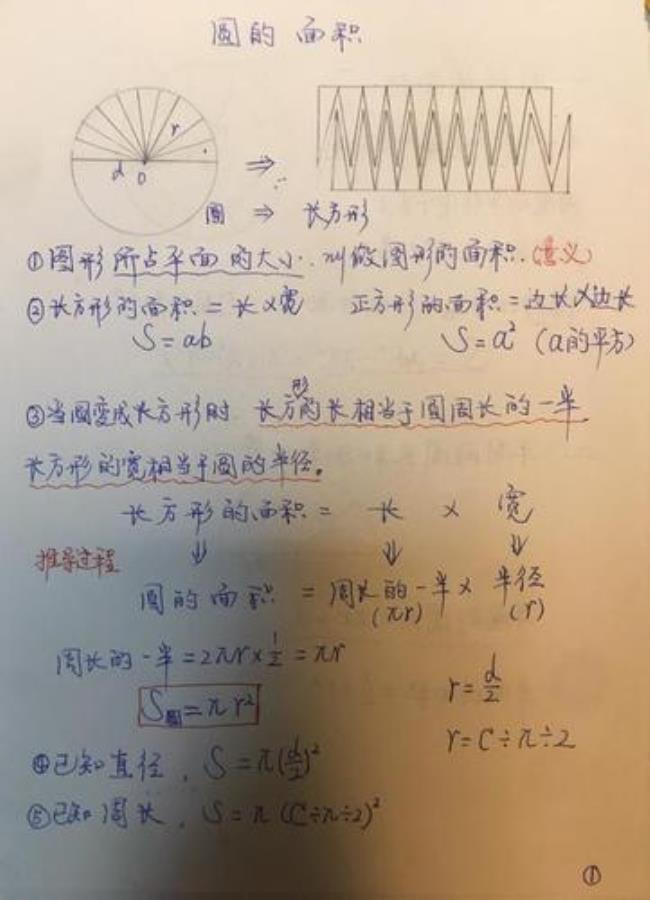 圆的面积
r
d O ⇒
圆 ⇒ 长方形
①图形所占平面的大小.叫做图形的面积.(意义)
②长方形的面积=长×宽 正方形的面积=边长×边长
S=ab S=a² (a的平方)
③当圆变成长方形时.长方形的长相当于圆周长的一半
长方形的宽相当于圆的半径。
长方形的面积 = 长 × 宽
推导过程 ⇓ ⇓ ⇓
圆的面积 = 周长的一半 × 半径
(πr) (r)
周长的一半=2πr×1/2=πr
r=d/2
S圆=πr²
r=C÷π÷2
④已知直径, S=π(d/2)²
⑤已知周长, S=π(C÷π÷2)²
①